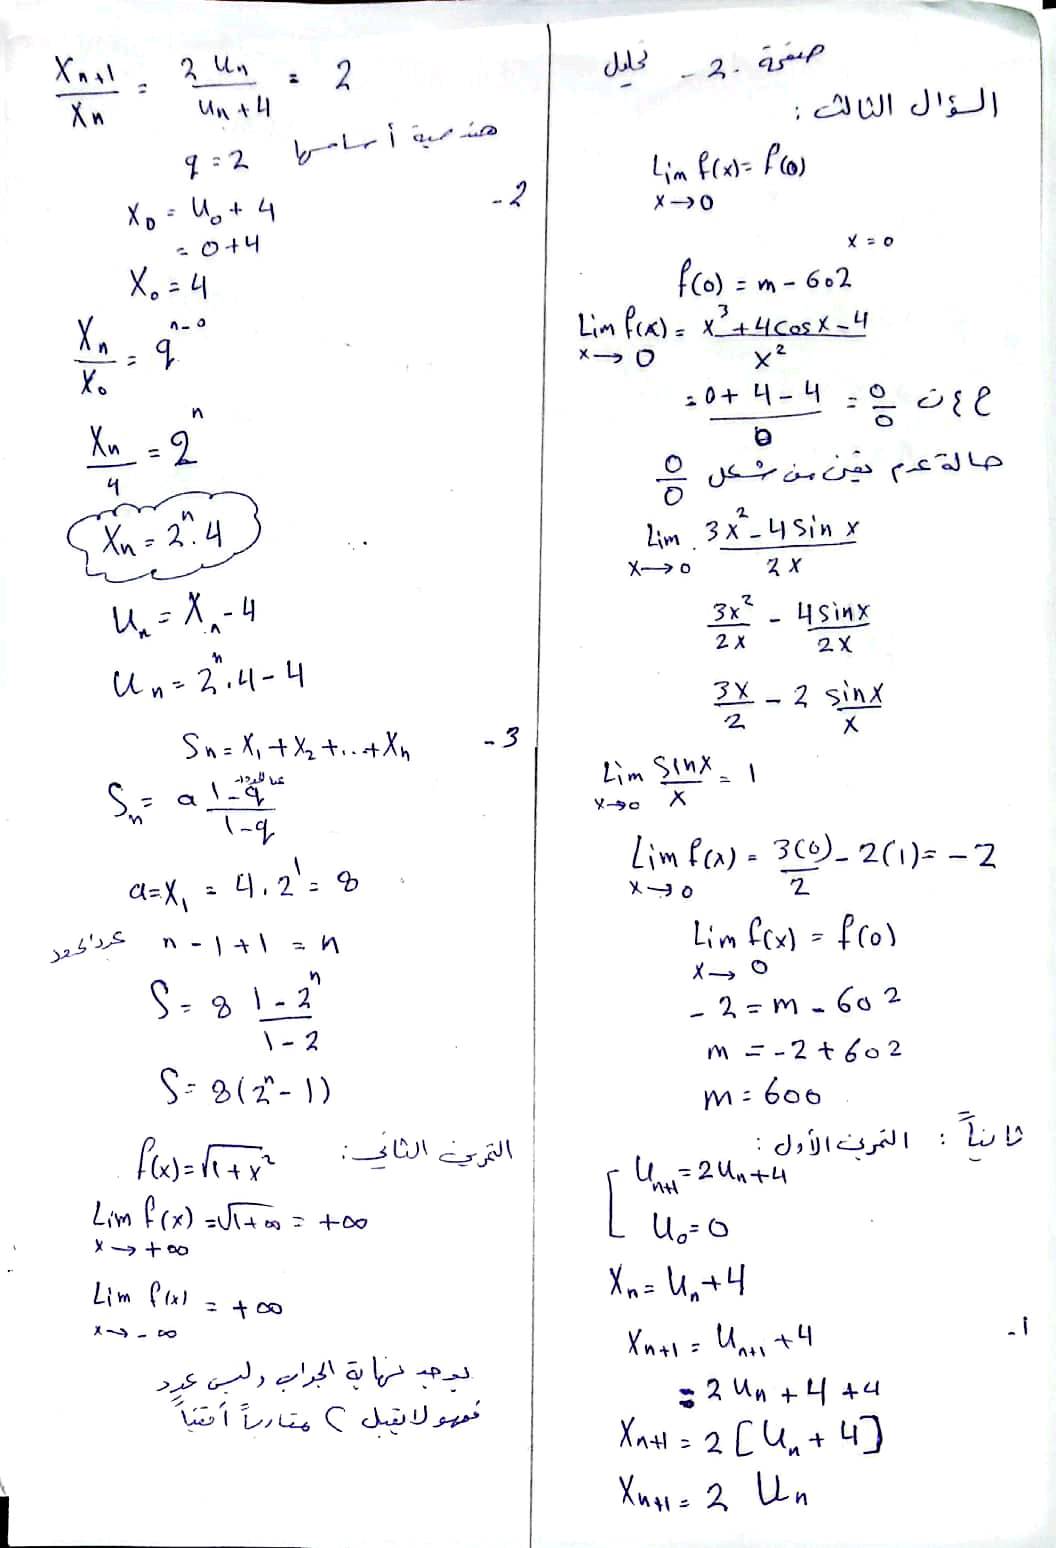 صفحة -2- تحليل
السؤال الثالث :
Lim f(x) = f(0)
x→0
x = 0
f(0) = m - 602
Lim f(x) = x³+4cosx-4 / x²
x→0
= 0+4-4 / 0 = 0/0 ح ع ت
حالة عدم تعين من شكل 0/0
Lim 3x²-4sin x / 2x
x→0
3x²/2x - 4sinx/2x
3x/2 - 2 sinx/x
Lim sinx/x = 1
x→0
Lim f(x) = 3(0)/2 - 2(1) = -2
x→0
Lim f(x) = f(0)
x→0
-2 = m - 602
m = -2+602
m = 600
ثانياً : التمرين الأول :
Un+1 = 2Un+4
U0 = 0
Xn = Un+4
1-
Xn+1 = Un+1 +4
= 2Un +4 +4
Xn+1 = 2[Un+4]
Xn+1 = 2 Un
Xn+1/Xn = 2Un/Un+4 = 2
q = 2 هندسية أساسها
2-
X0 = U0 + 4
= 0+4
X0 = 4
Xn/X0 = q^n-0
Xn/4 = 2^n
Xn = 2^n.4
Un = Xn - 4
Un = 2^n.4 - 4
3- Sn = X1+X2+..+Xn
Sn = a 1-q^عدد الحدود / 1-q
a=X1 = 4.2^1 = 8
n-1+1 = n عدد الحدود
S = 8 1-2^n / 1-2
S = 8(2^n-1)
التمرين الثاني:
f(x) = √1+x²
Lim f(x) = √1+∞ = +∞
x→+∞
Lim f(x) = +∞
x→-∞
يوجد نهاية الجواب وليس عدد
فهو لا يقبل C مقارباً أفقياً